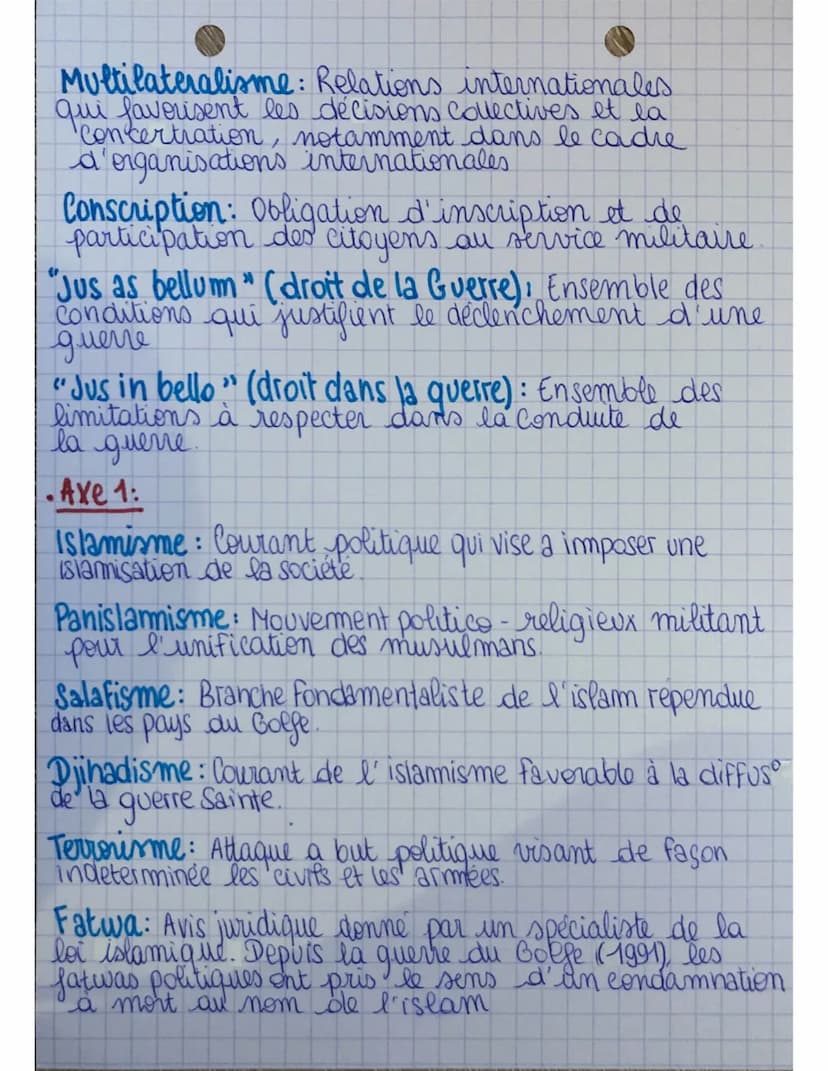 Multilateralisme : Relations internationales
qui favorisent les décisions collectives et la
concertration, notamment dans le cadre
d'organisations internationales
Conscription : Obligation d'inscription et de
participation des citoyens au service militaire.
"Jus as bellum" (droit de la Guerre) : Ensemble des
conditions qui justifient le déclenchement d'une
guerre
"Jus in bello" (droit dans la guerre) : Ensemble des
limitations à respecter dans la conduite de
la guerre.
• Axe 1:
Islamisme : Courant politique qui vise a imposer une
islamisation de la société.
Panislamisme : Mouvement politico-religieux militant
pour l'unification des musulmans.
Salafisme : Branche fondamentaliste de l'islam rependue
dans les pays du Golfe.
Djihadisme : Courant de l'islamisme favorable à la diffus°
de la guerre Sainte.
Terrorisme : Attaque a but politique visant de façon
indeterminée les civils et les armées.
Fatwa : Avis juridique donné par un spécialiste de la
loi islamique. Depuis la guerre du Golfe (1991), les
fatwas politiques ont pris le sens d'un condamnation
à mort au nom de l'islam